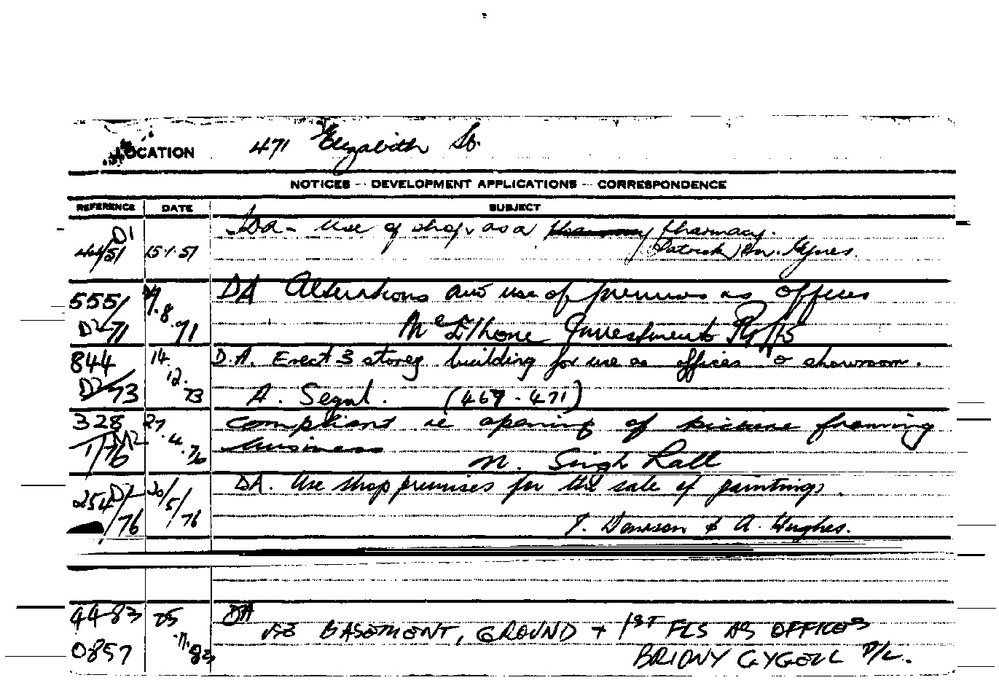 LOCATION 471 Elizabeth St.
NOTICES - DEVELOPMENT APPLICATIONS - CORRESPONDENCE
REFERENCE DATE SUBJECT
D1 DA - Use of shop as a pharmacy.
/51 15.1.51 Patrick
5551 8 DA Alterations and use of premises as offices
D2 71 71 Investments Pty
844 14. D.A. Erect 3 storey building for use as offices & showroom.
D2 73 12. 73 A. Segal. (469 - 471)
328 27 compliant re opening of picture framing
1/76 4. 76 business
M. Singh Rall
254 D2 20/5/76 DA. Use shop premises for the sale of paintings.
76 & A. Hughes.
44-83 25 DA
USE BASEMENT, GROUND + 1ST FLS AS OFFICES
0857 11. 83 BRIONY GYGELL P/L.